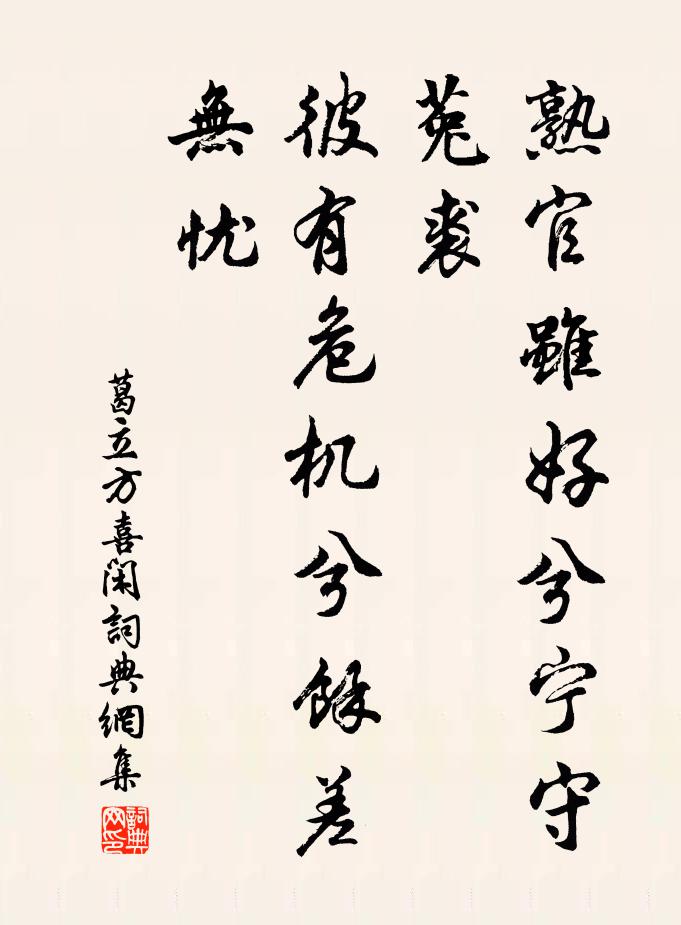 熟官雖好兮宁守
菟裘
彼有危机兮餘差
無忧
葛立方喜閑詞典網集
詞典网印